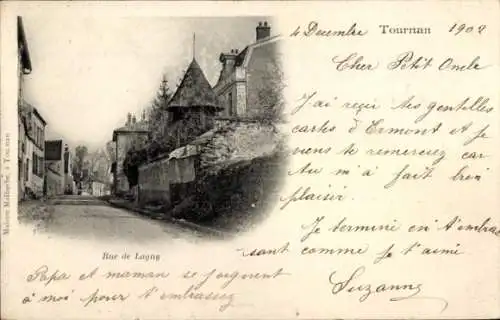 4 Decembre Tournan 1902
Cher Petit Oncle
J'ai reçu tes gentilles
cartes d'Ermont et je
viens te remerciez car
tu m'a fait bien
plaisir.
Je termine en t'embras
sant comme je t'aime
Suzanne
Rue de Lagny
Papa et maman se joignent
à moi pour t'embrassez
Maison Mollache, à Tournan